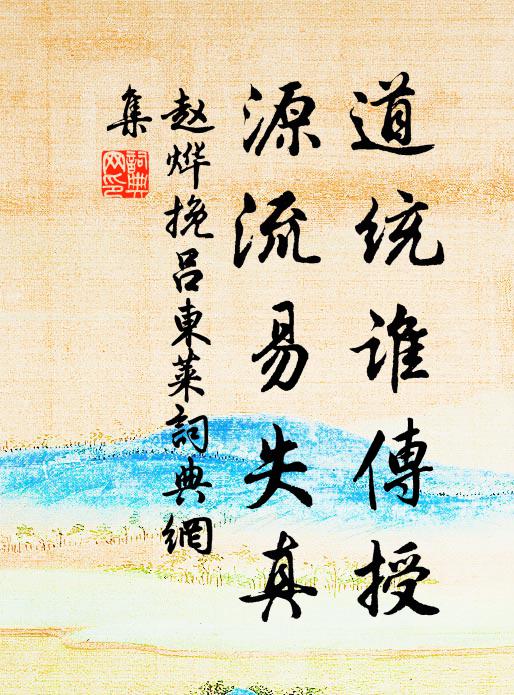 道统谁傳授
源流易失真
赵烨挽吕東莱詞典網
集
詞典
网印